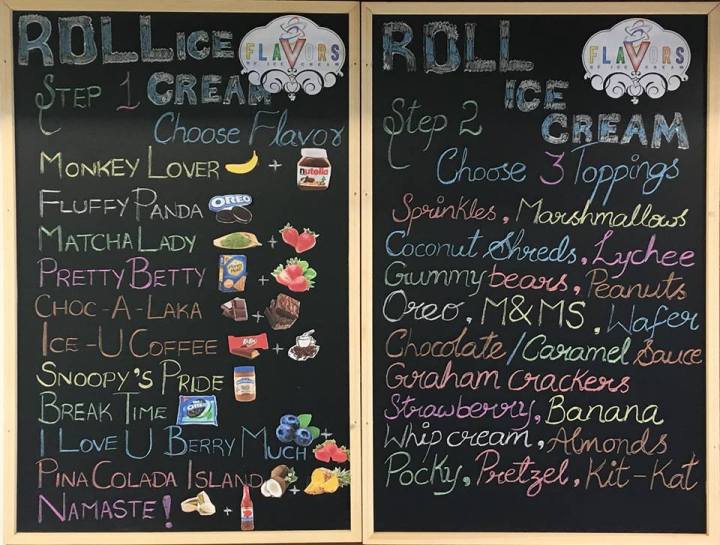 ROLL ICE
STEP 1 CREAM
Choose Flavor
FLAVORS
OF ICE CREAM
MONKEY LOVER +
nutella
FLUFFY PANDA
OREO
MATCHA LADY +
PRETTY BETTY +
CHOC-A-LAKA +
ICE-U COFFEE +
SNOOPY'S PRIDE
BREAK TIME
OREO
I LOVE U BERRY MUCH +
PINA COLADA ISLAND +
NAMASTE! +
ROLL
ICE
CREAM
FLAVORS
OF ICE CREAM
Step 2
Choose 3 Toppings
Sprinkles, Marshmallows
Coconut Shreds, Lychee
Gummybears, Peanuts
Oreo, M&MS, Wafer
Chocolate/Caramel Sauce
Graham crackers
Strawberry, Banana
Whip cream, Almonds
Pocky, Pretzel, Kit-Kat